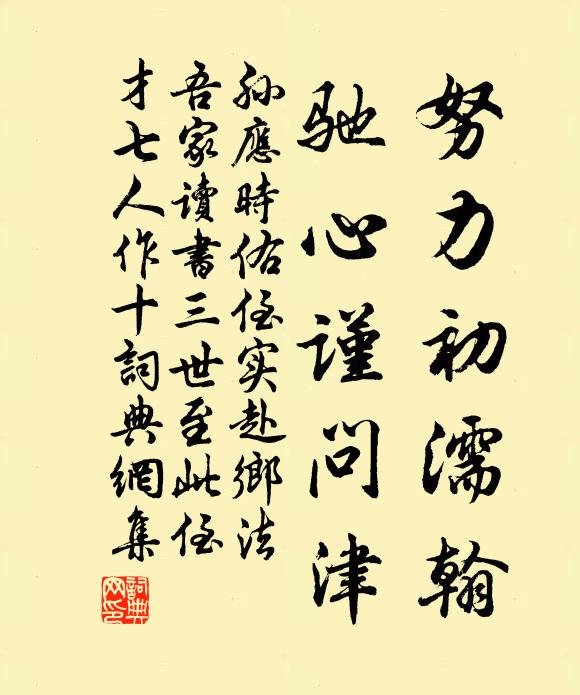 努力初濡翰
馳心謹問津
孫應時佑侄实赴鄉法
吾家讀書三世至此侄
才七人作十詞典網集
詞典网印